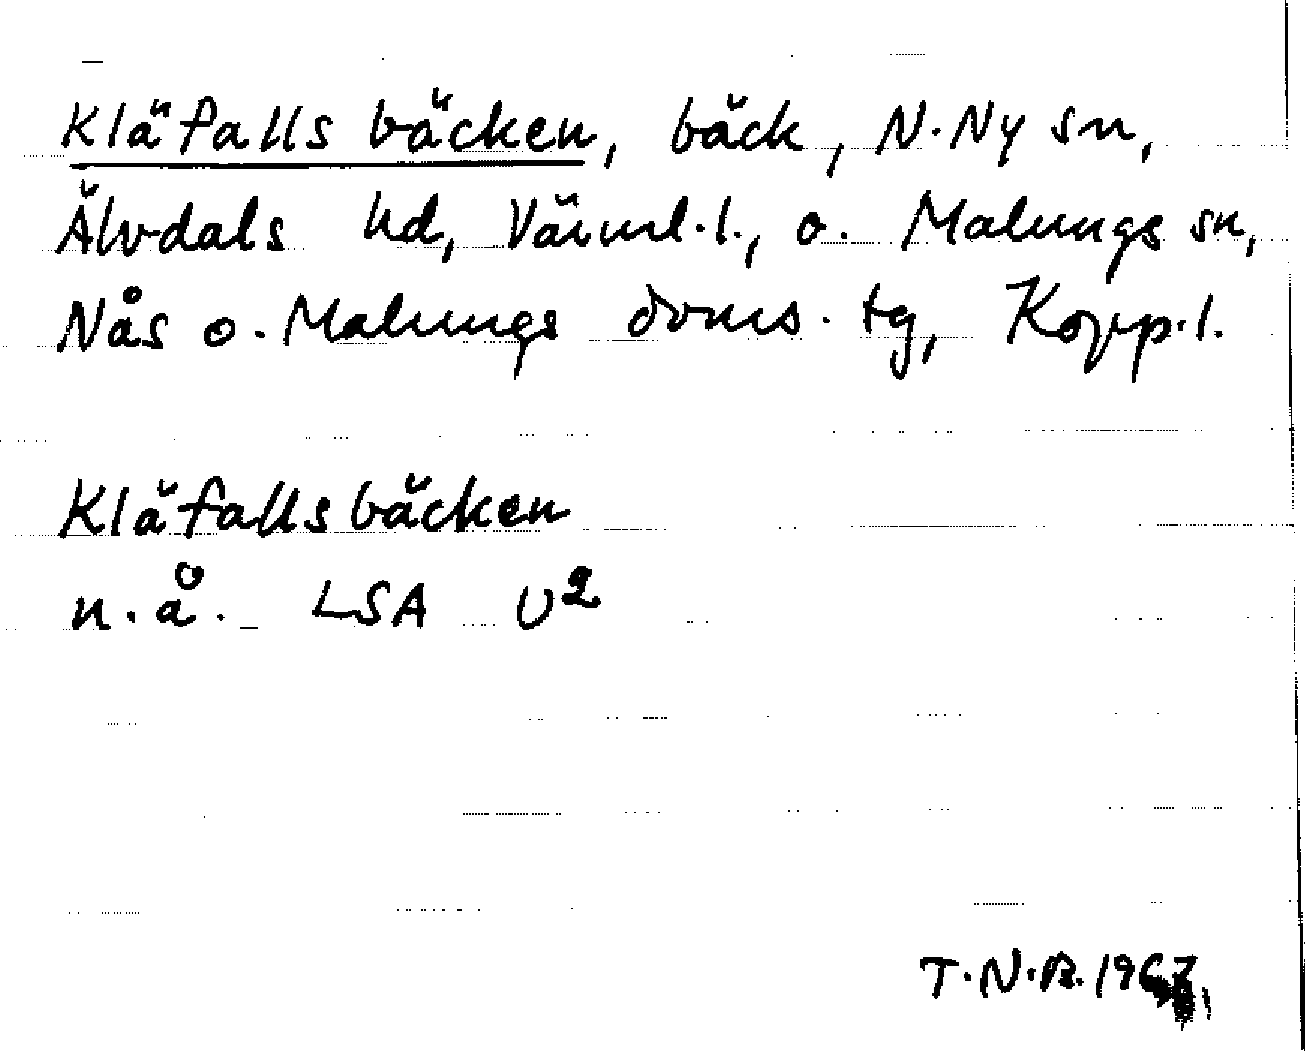 Kläfallsbäcken, bäck, N. Ny sn,
Älvdals hd, Värml. l., o. Malungs sn,
Nås o. Malungs doms. tg, Kopp. l.
Kläfallsbäcken
n. å. LSA U²
T.N.B. 1967